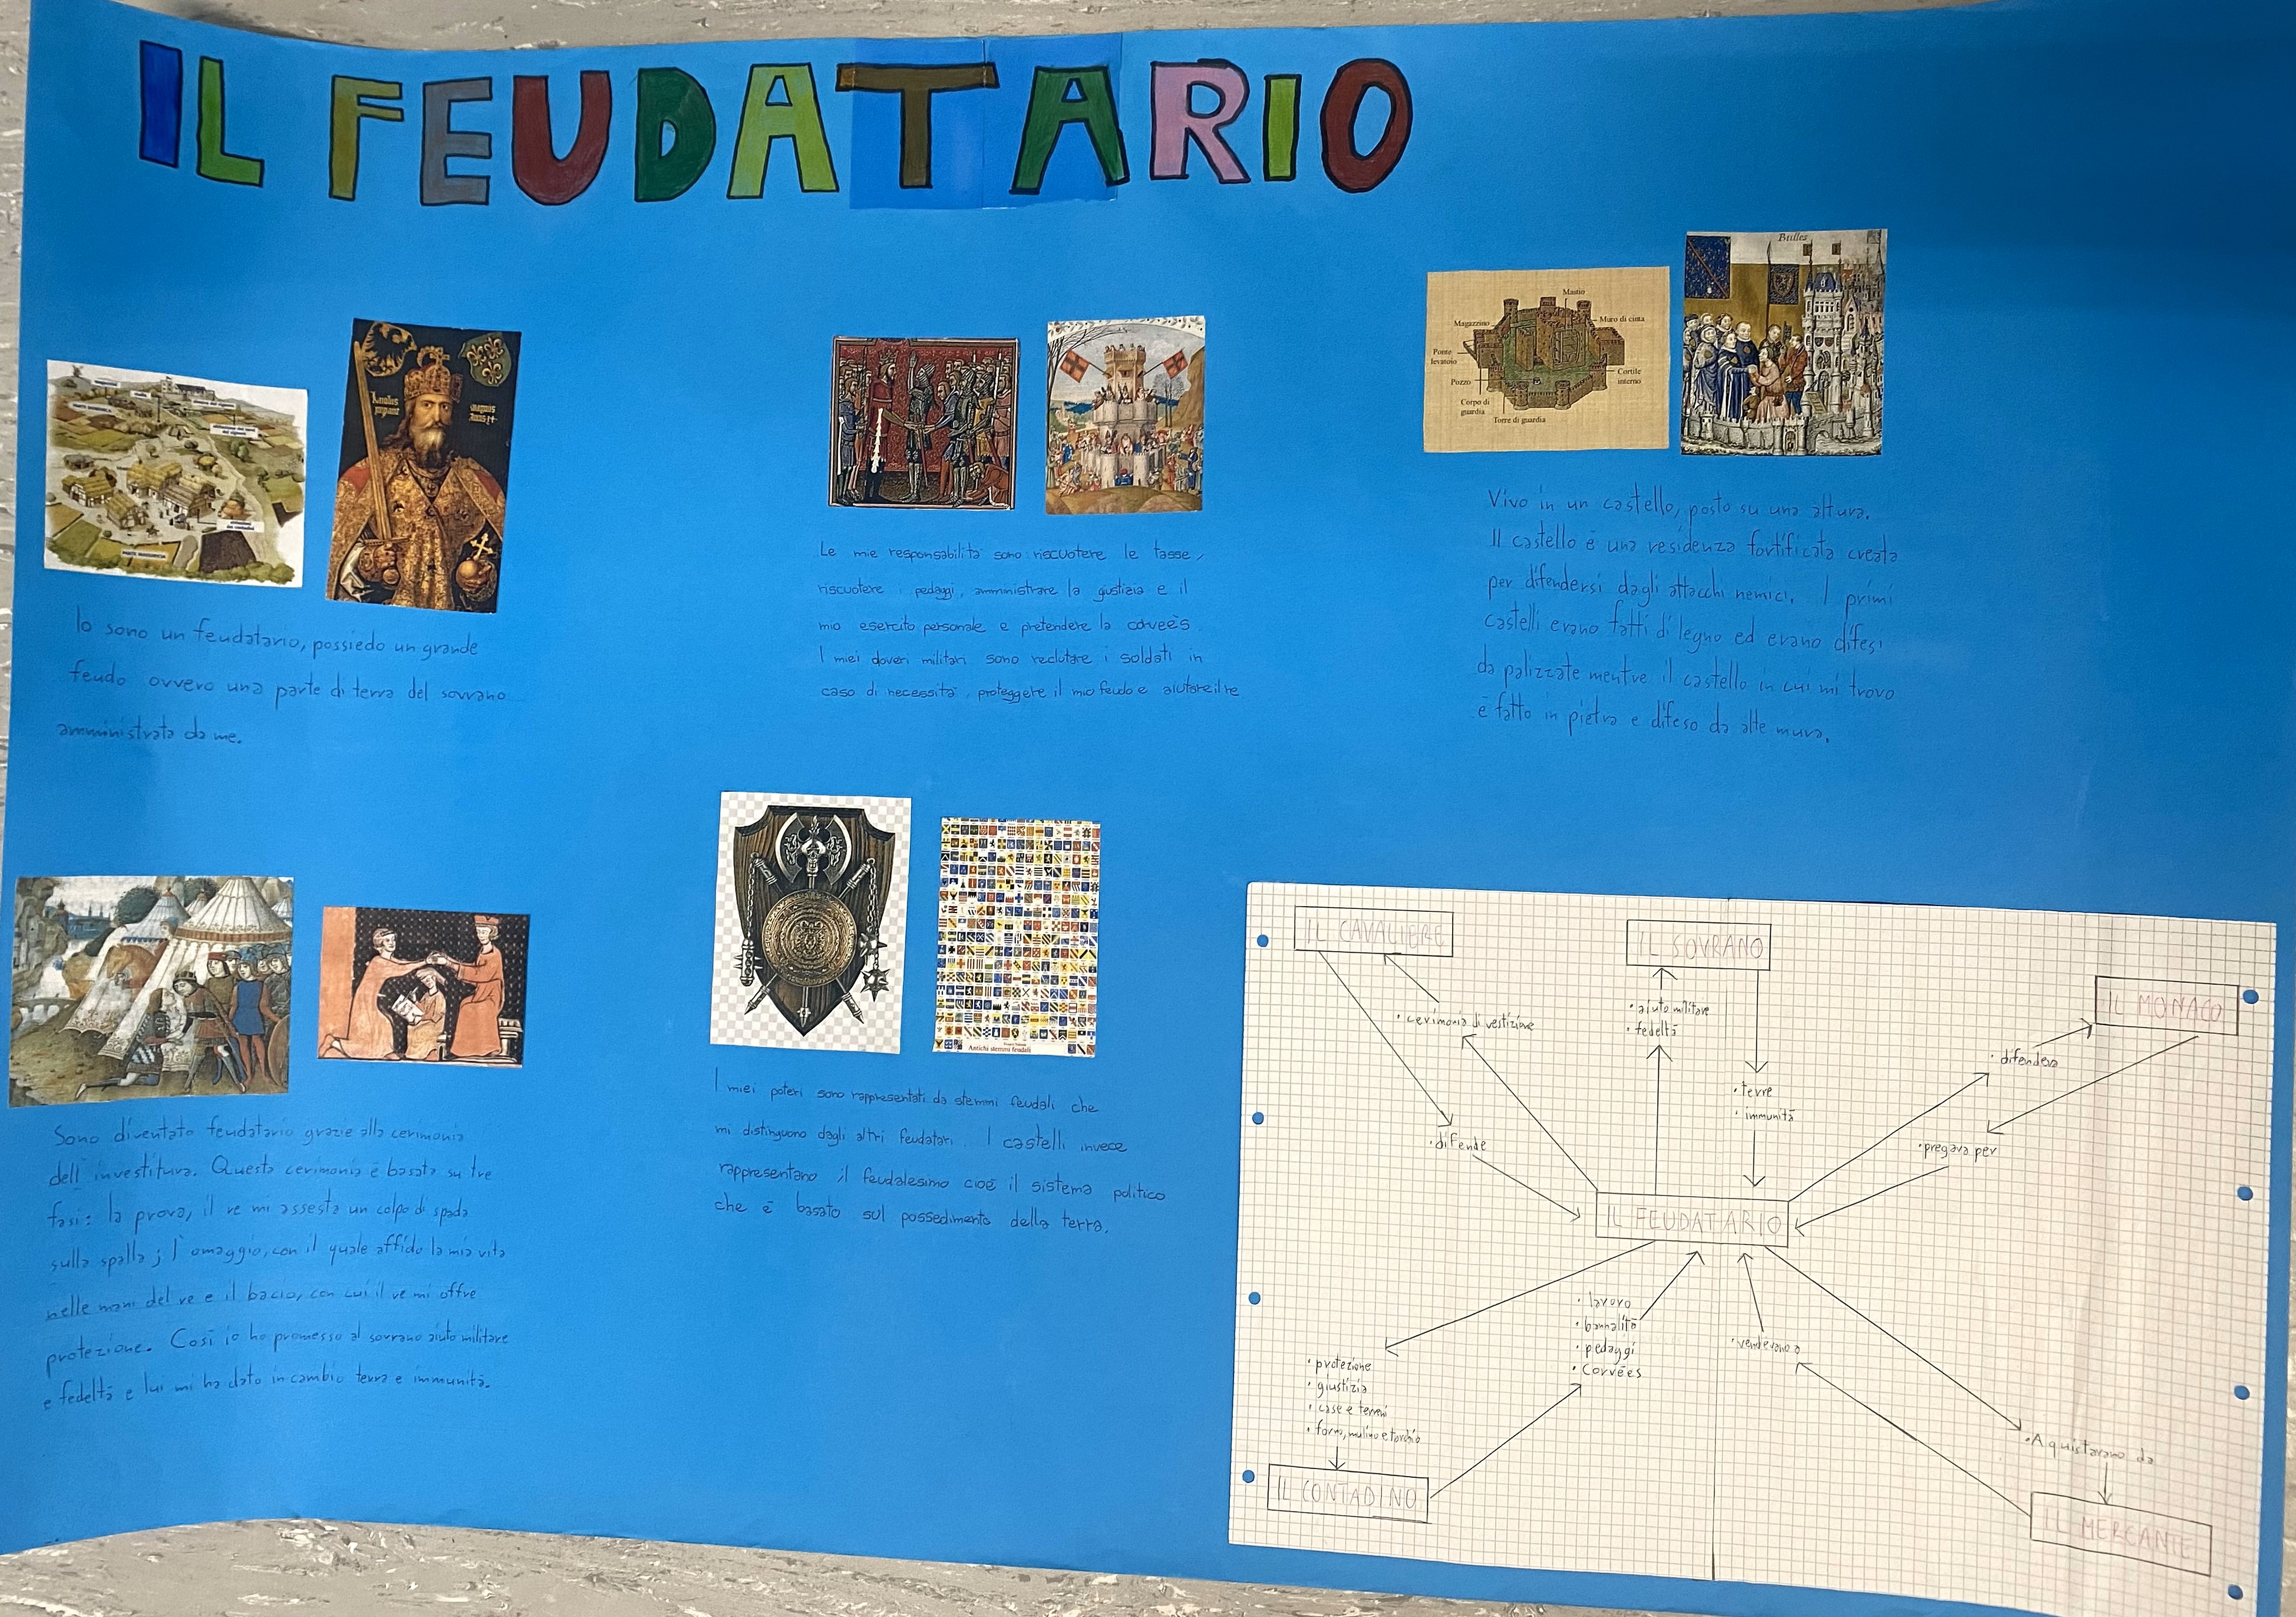 IL FEUDATARIO
Io sono un feudatario, possiedo un grande
feudo ovvero una parte di terra del sovrano
amministrata da me.
Le mie responsabilità sono: riscuotere le tasse,
riscuotere i pedaggi, amministrare la giustizia e il
mio esercito personale e pretendere la corveès.
I miei doveri militari sono reclutare i soldati in
caso di necessità, proteggere il mio feudo e aiutare il re.
Mastio
Magazzino
Muro di cinta
Ponte
levatoio
Cortile
interno
Pozzo
Corpo di
guardia
Torre di guardia
Vivo in un castello, posto su una altura.
Il castello è una residenza fortificata creata
per difendersi dagli attacchi nemici. I primi
castelli erano fatti di legno ed erano difesi
da palizzate mentre il castello in cui mi trovo
è fatto in pietra e difeso da alte mura.
Sono diventato feudatario grazie alla cerimonia
dell'investitura. Questa cerimonia è basata su tre
fasi: la prova, il re mi assesta un colpo di spada
sulla spalla; l'omaggio, con il quale affido la mia vita
nelle mani del re e il bacio, con cui il re mi offre
protezione. Così io ho promesso al sovrano aiuto militare
e fedeltà e lui mi ha dato in cambio terra e immunità.
Antichi stemmi feudali
I miei poteri sono rappresentati da stemmi feudali che
mi distinguono dagli altri feudatari. I castelli invece
rappresentano il feudalesimo cioè il sistema politico
che è basato sul possedimento della terra.
IL CAVALIERE
IL SOVRANO
IL MONACO
• cerimonia di vestizione
• aiuto militare
• fedeltà
• terre
• immunità
• difendeva
• difende
• pregava per
IL FEUDATARIO
• lavoro
• bannalità
• pedaggi
• corvées
• vendevano a
• protezione
• giustizia
• case e terreni
• forno, mulino e torchio
• Aquistavano da
IL CONTADINO
IL MERCANTE